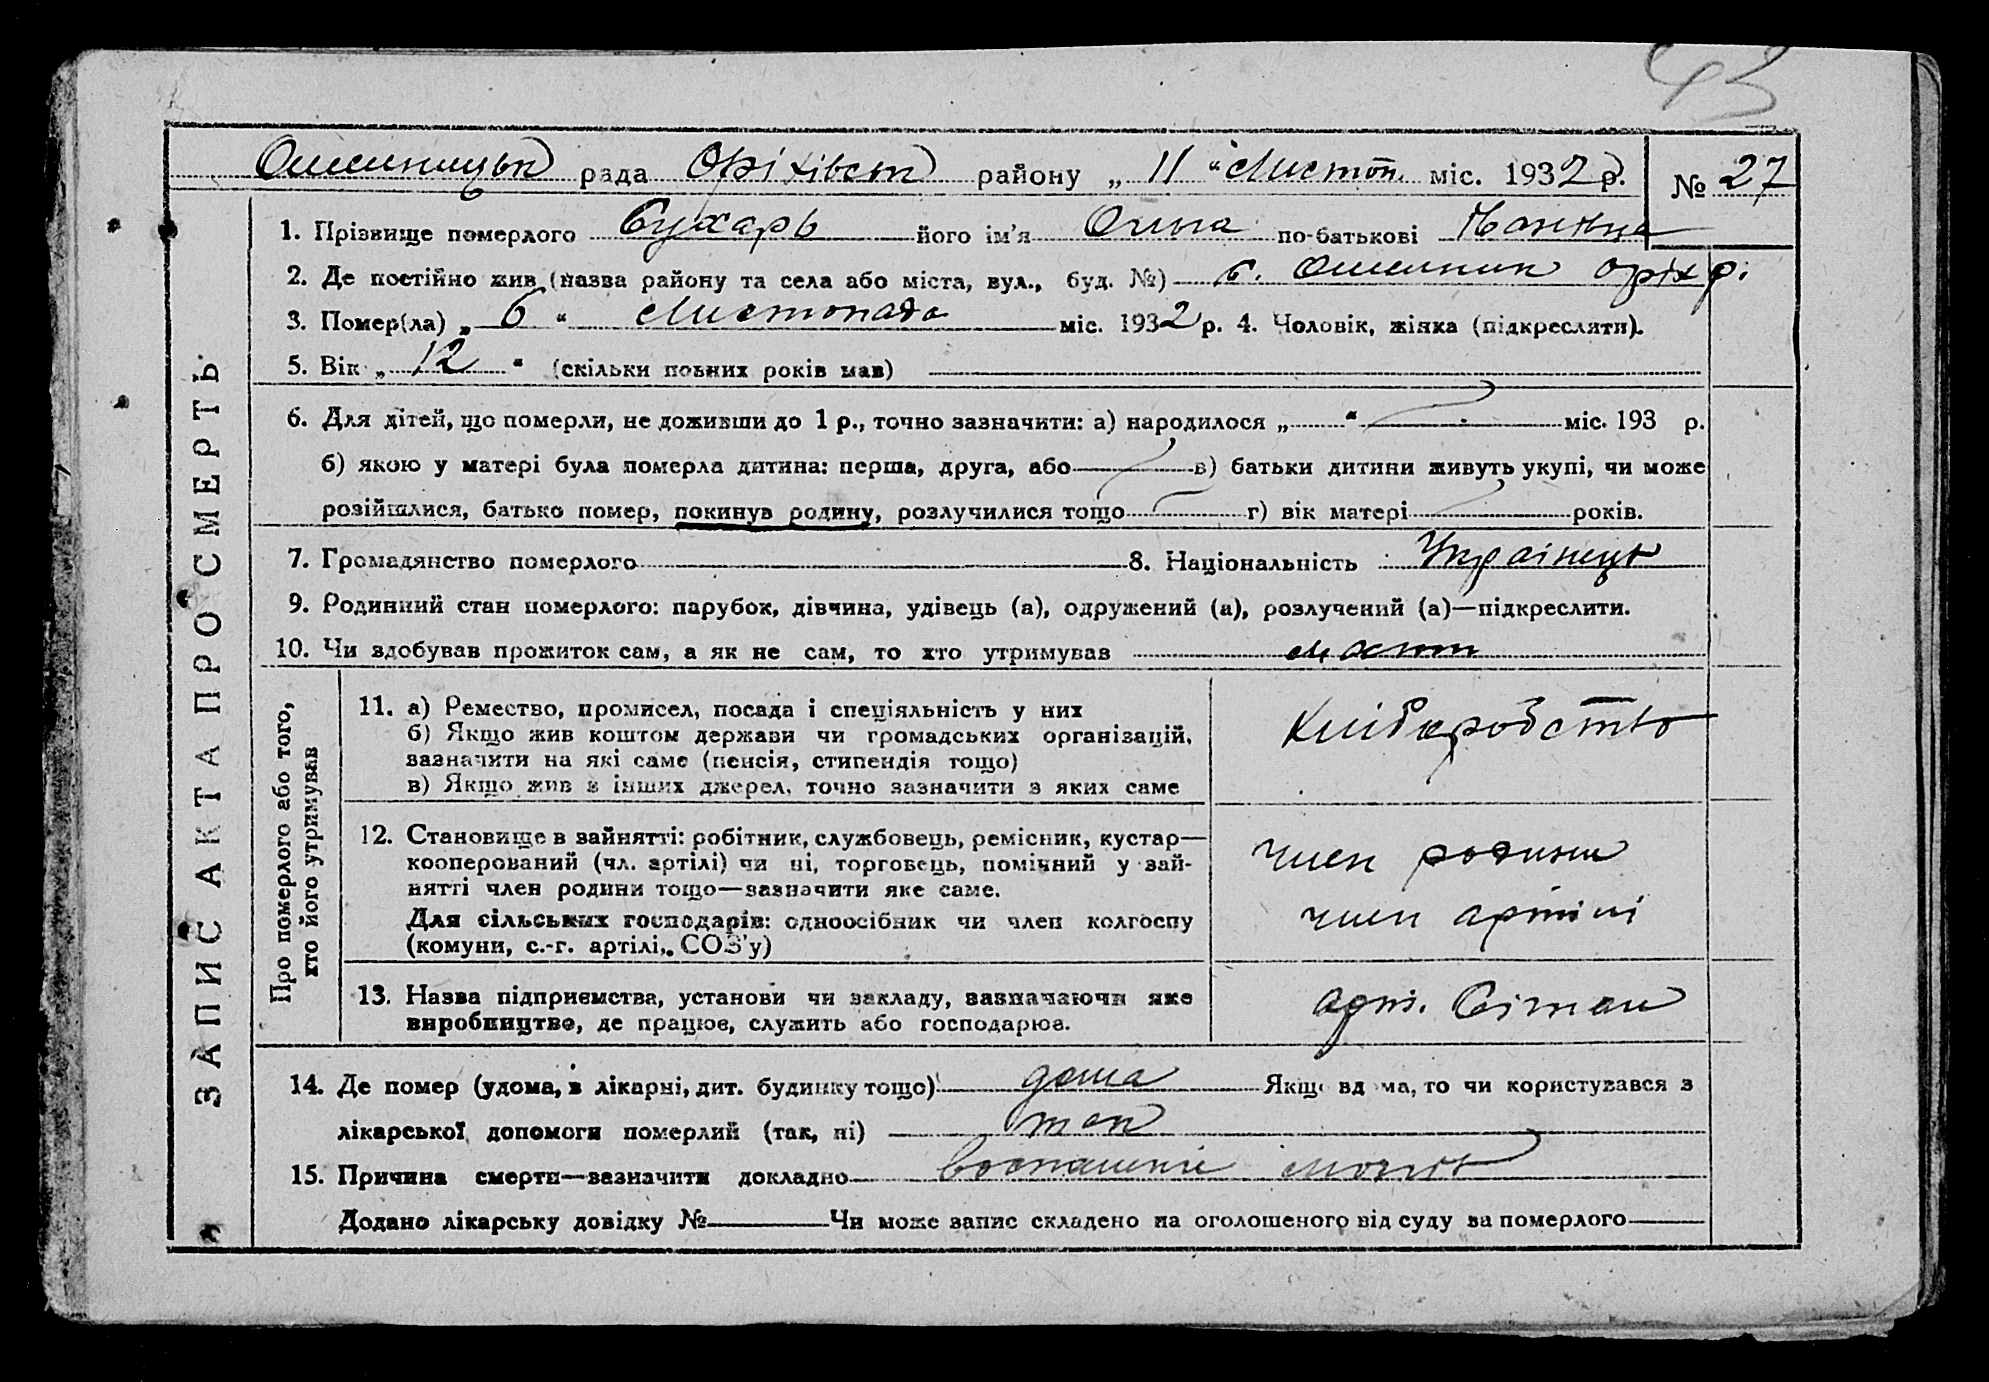 43
рада Оріхівськ району „ 11 “ Листоп. міс. 1932 р. № 27
ЗАПИС АКТА ПРО СМЕРТЬ
1. Прізвище померлого Сухарь його ім'я Ольга по-батькові
2. Де постійно жив (назва району та села або міста, вул., буд. №) с. Оріх р.
3. Помер(ла) „ 6 “ Листопада міс. 1932 р. 4. Чоловік, жінка (підкреслити).
5. Вік „ 12 “ (скільки повних років мав)
6. Для дітей, що померли, не доживши до 1 р., точно зазначити: а) народилося „ “ міс. 193 р.
б) якою у матері була померла дитина: перша, друга, або в) батьки дитини живуть укупі, чи може
розійшлися, батько помер, покинув родину, розлучилися тощо г) вік матері років.
7. Громадянство померлого 8. Національність Українець
9. Родинний стан померлого: парубок, дівчина, удівець (а), одружений (а), розлучений (а)—підкреслити.
10. Чи здобував прожиток сам, а як не сам, то хто утримував мати
Про померлого або того,
хто його утримував
11. а) Ремество, промисел, посада і спеціяльність у них
б) Якщо жив коштом держави чи громадських організацій,
зазначити на які саме (пенсія, стипендія тощо)
в) Якщо жив з інших джерел, точно зазначити з яких саме
хлібородство
12. Становище в зайнятті: робітник, службовець, ремісник, кустар—
кооперований (чл. артілі) чи ні, торговець, помічний у зай-
нятті член родини тощо—зазначити яке саме.
Для сільських господарів: одноосібник чи член колгоспу
(комуни, с.-г. артілі,. СОЗ'у)
член родини
член артілі
13. Назва підприємства, установи чи закладу, зазначаючи яке
виробництво, де працює, служить або господарює.
арт.
14. Де помер (удома, в лікарні, дит. будинку тощо) дома Якщо вдома, то чи користувався з
лікарської допомоги померлий (так, ні) так
15. Причина смерти—зазначити докладно воспаленіе
Додано лікарську довідку № Чи може запис складено на оголошеного від суду за померлого